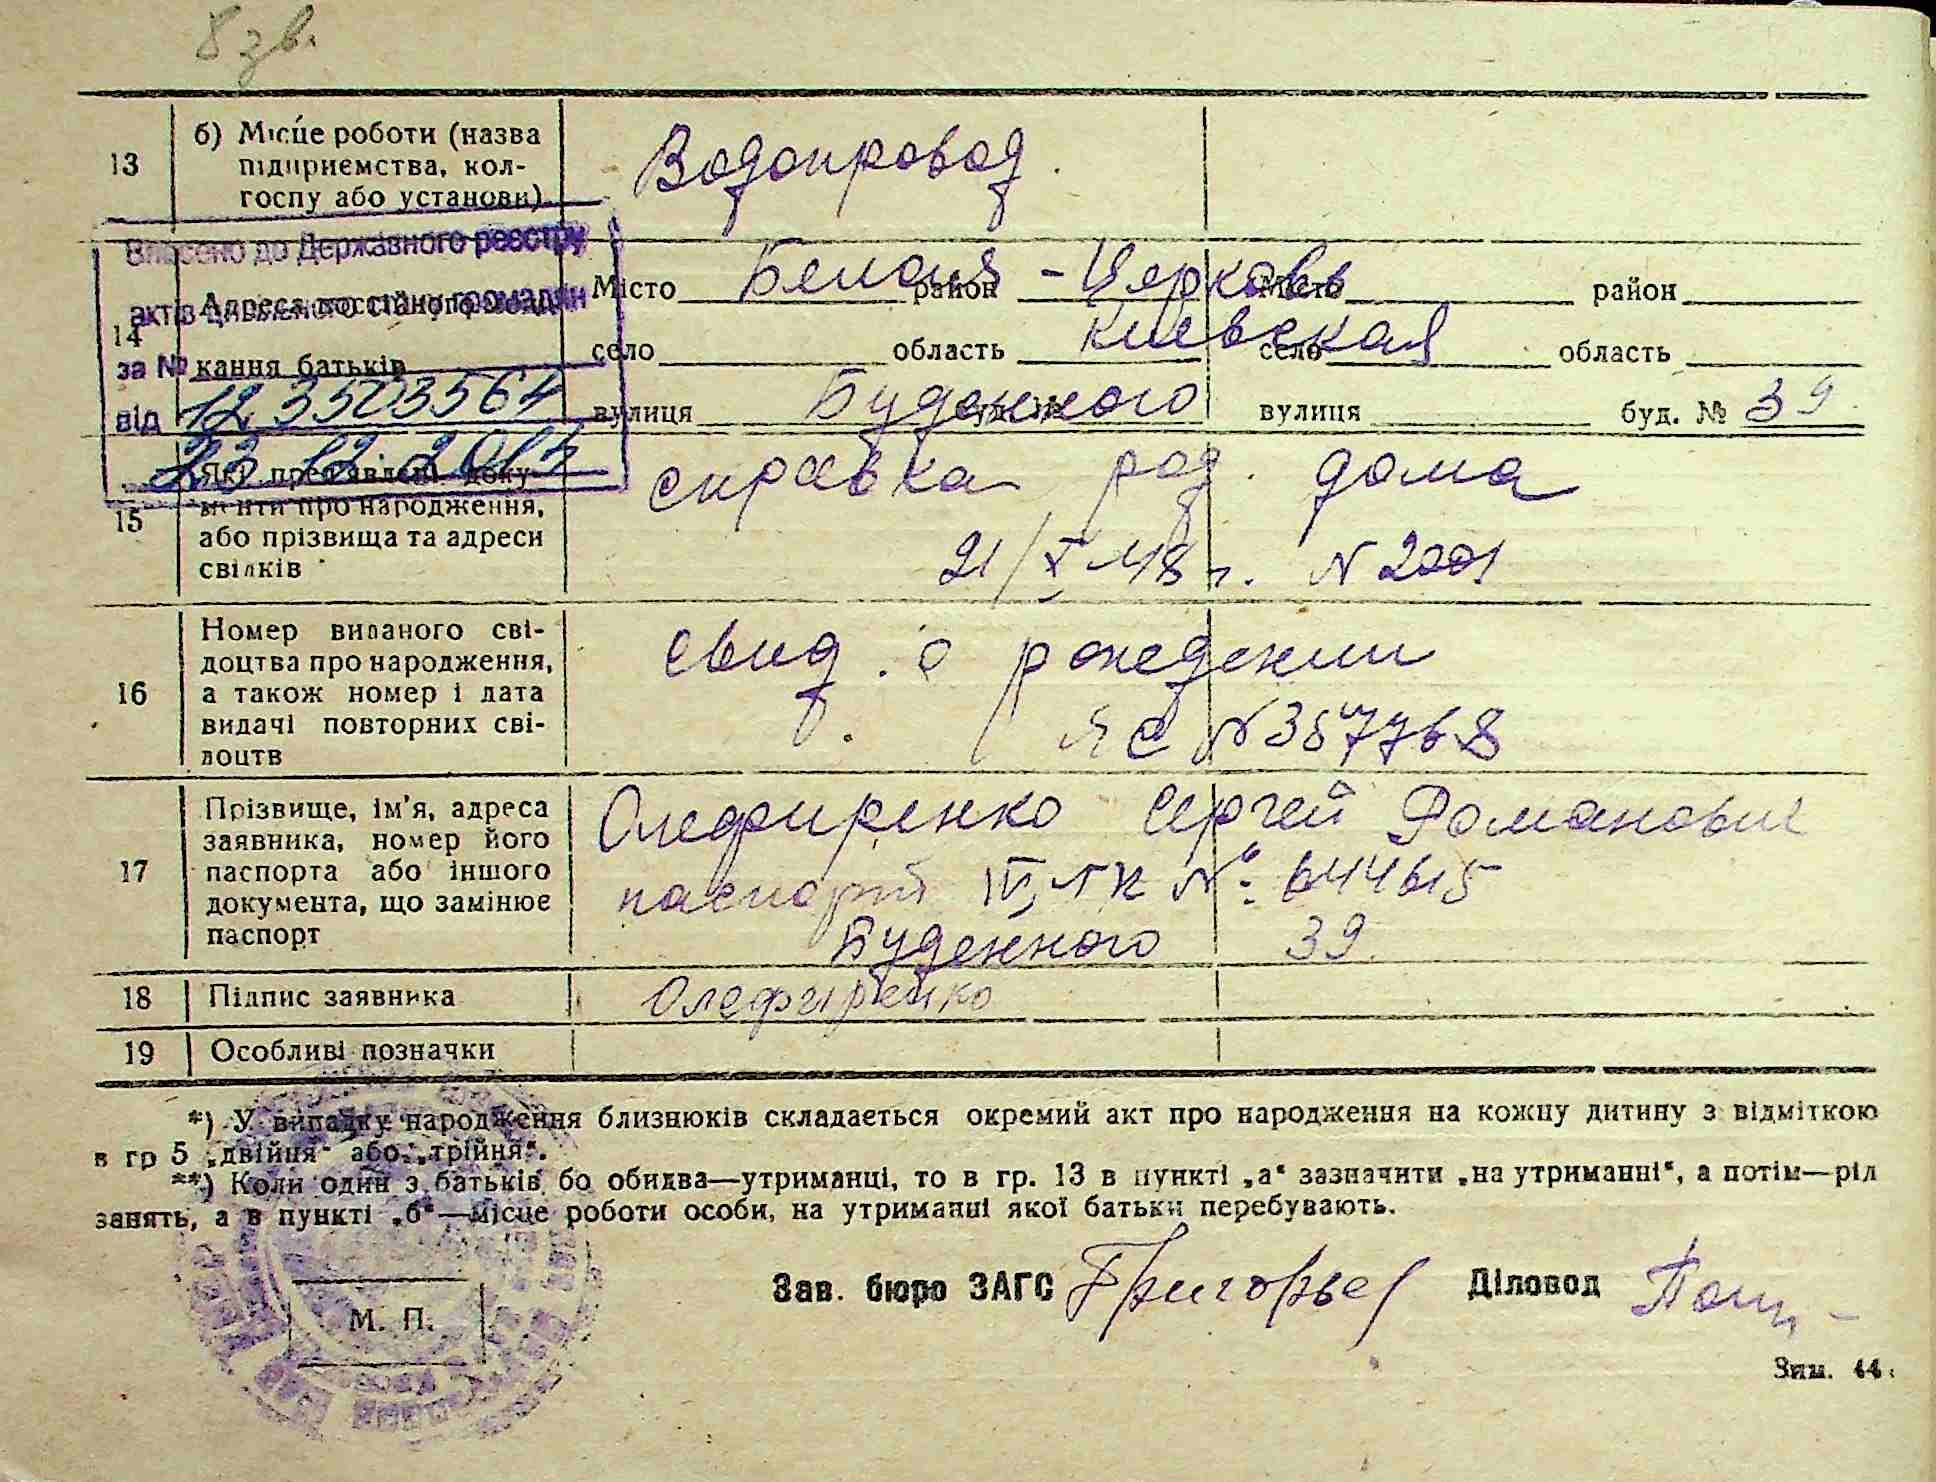 8 зв.
13 б) Місце роботи (назва підприємства, колгоспу або установи) Водопровод.
Внесено до Державного реєстру
актів цивільного стану громадян
за №
12 3503564
від 23 12 2017
14 Адреса постійного
кання батьків
Місто Белая - Церковь район Місто район
село область Киевская село область
вулиця Буденного буд. № вулиця буд. № 39
15 Які пред'явлені доку-
менти про народження,
або прізвища та адреси
свідків
справка род. дома
21/X 48 г. N 2001
16 Номер виданого сві-
доцтва про народження,
а також номер і дата
видачі повторних сві-
доцтв
свид. о рождении
ЯС N 357768
17 Прізвище, ім'я, адреса
заявника, номер його
паспорта або іншого
документа, що замінює
паспорт
Олефиренко Сергей Романович
паспорт IV ЛК № 644615
Буденного 39
18 Підпис заявника Олефиренко
19 Особливі позначки
*) У випадку народження близнюків складається окремий акт про народження на кожну дитину з відміткою
в гр 5 „двійня" або „трійня".
**) Коли один з батьків бо обидва—утриманці, то в гр. 13 в пункті „а" зазначити „на утриманні", а потім—рід
занять, а в пункті „б"—місце роботи особи, на утриманні якої батьки перебувають.
Зав. бюро ЗАГС Григорьев Діловод
М. П.
Зим. 44